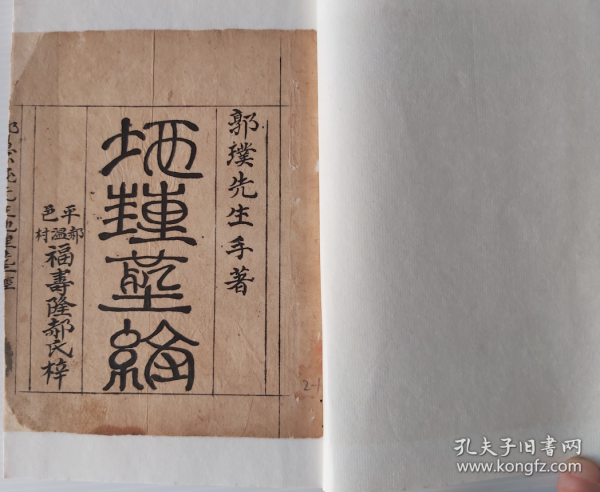 郭璞先生手著
地理
平邑都溫村福壽隆郝氏梓
2-1
孔夫子旧书网
www.kongfz.com